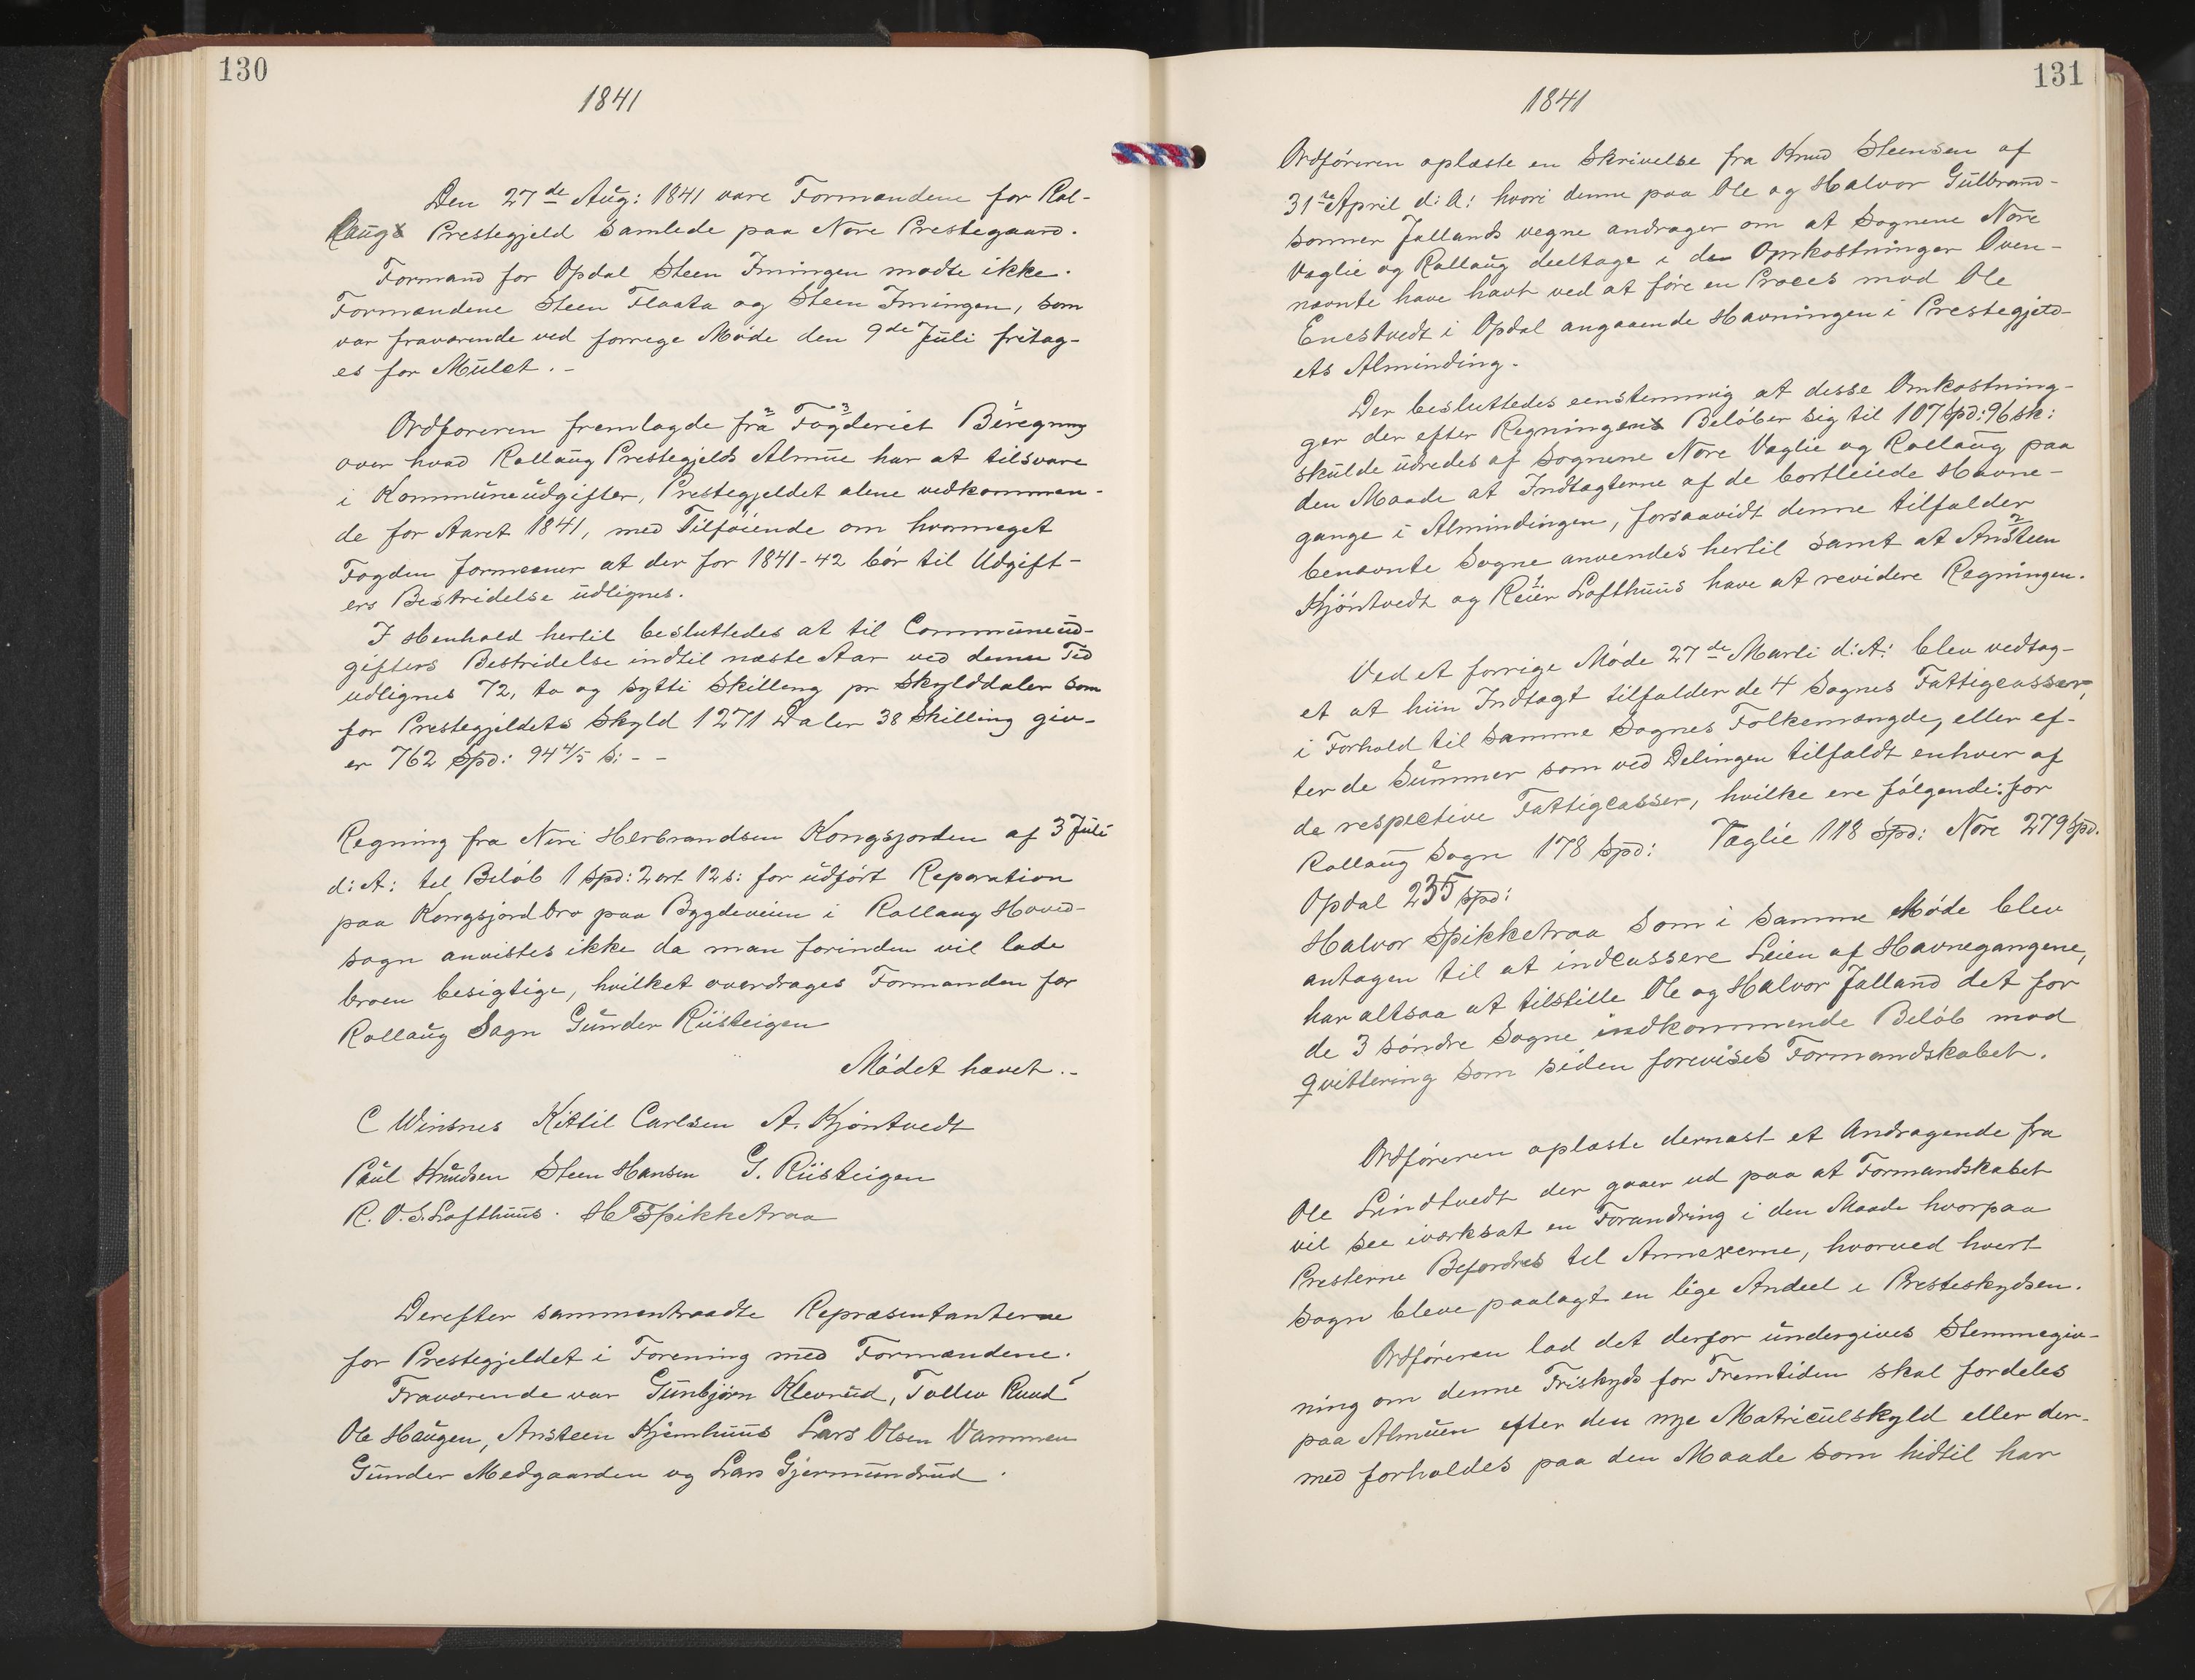 130
1841
Den 27de Aug: 1841 vare Formændene for Rol-
laugs Prestegjeld samlede paa Nore Prestegaard.
Formand for Opdal Steen Imingen mødte ikke.
Formændene Steen Flaata og Steen Imingen, som
var fraværende ved forrege Møde den 9de Juli fritag-
es for Mulct. -
Ordføreren fremlagde fra Fogderiet Beregning
over hvad Rollaug Prestegjelds Almue har at tilsvare
i Kommuneudgifter, Prestegjeldet alene vedkommen-
de for Aaret 1841, med Tilføiende om hvormeget
Fogden formener at der for 1841-42 bør til Udgift-
ers Bestridelse udlignes.
I Henhold hertil besluttedes at til Communeud-
gifters Bestridelse indtil næste Aar ved denne Tid
udlignes 72, to og sytti Skilling pr Skylddaler som
for Prestegjeldets Skyld 1271 Daler 38 Skilling giv-
er 762 Spd: 94 4/5 s: - -
Regning fra Niri Herbrandsen Kongsjorden af 3 Juli
d: A: til Beløb 1 Spd: 2 ort 12 s: for udført Reparation
paa Kongsjord bro paa Bygdeveien i Rollaug Hoved-
sogn anvistes ikke da man forinden vil lade
broen besigtige, hvilket overdrages Formanden for
Rollaug Sogn Gunder Riisteigen
Mødet hævet. -
C Winsnes Kittil Carlsen A. Kjøntvedt
Paul Knudsen Steen Hansen G. Riisteigen
R. O. S. Lofthuus. H T Spikketraa
Derefter sammentraadte Repræsentanterne
for Prestegjeldet i Forening med Formændene.
Fraværende var Gunbjørn Klevrud, Tollev Ruud
Ole Haugen, Ansteen Kjemhuus Lars Olsen Vammen
Gunder Medgaarden og Lars Gjermundrud.
131
1841
Ordføreren oplæste en Skrivelse fra Knud Steensen af
31te April d: A: hvori denne paa Ole og Halvor Gulbrand-
sønner Jallands vegne andrager om at Sognene Nore
Væglie og Rollaug deeltage i de Omkostninger Oven-
nævnte have havt ved at føre en Proces mod Ole
Enestvedt i Opdal angaaende Havningen i Prestegjeld-
ets Alminding.
Der besluttedes eenstemmig at disse Omkostning-
ger der efter Regningens Beløber sig til 107 Spd: 96 sk:
skulde udredes af Sognene Nore Væglie og Rollaug paa
den Maade at Indtægterne af de bortleiede Havne-
gange i Almindingen, forsaavidt denne tilfalder
benævnte Sogne anvendes hertil samt at Ansteen
Kjøntvedt og Reier Lofthuus have at revidere Regningen.
Ved et forrige Møde 27de Marti d: A: blev vedtag-
et at hiin Indtægt tilfalder de 4 Sognes Fattigcasser,
i Forhold til samme Sognes Folkemængde, eller ef-
ter de Summer som ved Delingen tilfaldt enhver af
de respective Fattigcasser, hvilke ere følgende: for
Rollaug Sogn 178 Spd: Væglie 118 Spd: Nore 279 Spd.
Opdal 235 Spd:
Halvor Spikketraa som i samme Møde blev
antagen til at indcassere Leien af Havnegangene,
har altsaa at tilstille Ole og Halvor Jalland det for
de 3 søndre Sogne indkommende Beløb mod
Qvittering som siden forevises Formandskabet.
Ordføreren oplæste dernæst et Andragende fra
Ole Lindtvedt der gaaer ud paa at Formandskabet
vil see iværksat en Forandring i den Maade hvorpaa
Presterne Befordres til Annexerne, hvorved hvert
Sogn bleve paalagt en lige Andeel i Presteskydsen.
Ordføreren lod det derfor undergives Stemmegiv-
ning om denne Friskyds for Fremtiden skal fordeles
paa Almuen efter den nye Matriculskyld eller der-
med forholdes paa den Maade som hidtil har